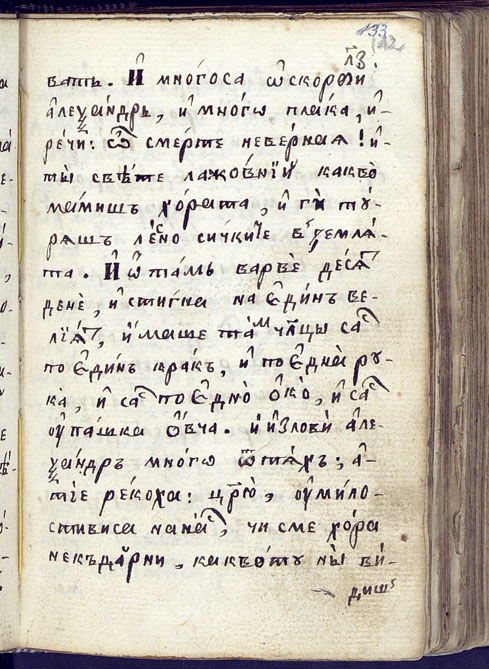 133
132
л҃в.
вать. И҆ многоса ѡ҆скорби
а҆леѯандръ, и҆ многѡ плака, и҆-
речи: ѽ смерте неверная! и҆-
ты̀ свѣте лажовнїй какво̀
мамишъ хо́рата, и҆ гѝ ту́-
ряшъ ле́сно сичкиⷮе в земля̀-
та. И҆ ѿтамъ варвѐ десѧⷮ
дене, и҆ стигна на є҆ди́нъ ве-
лїѧⷮ, и҆маше таⷨ чл҃цы саⷭ
по є҆ди́нъ кракъ, и҆ по є҆дна̀ ру-
ка̀, и҆ саⷭ по є҆дно̀ о҆ко̀, и҆ саⷭ
ѹ҆пашка о҆́вча. и҆ и҆злови а҆ле-
ѯандръ многѡ ѿтѧхъ; а҆-
тїе ре́коха: цр҃ю̀, ѹ҆мило-
стивиса на наⷭ, чи сме хо́ра
некъдѧрни, каквото ны̀ ви́-
дишъ